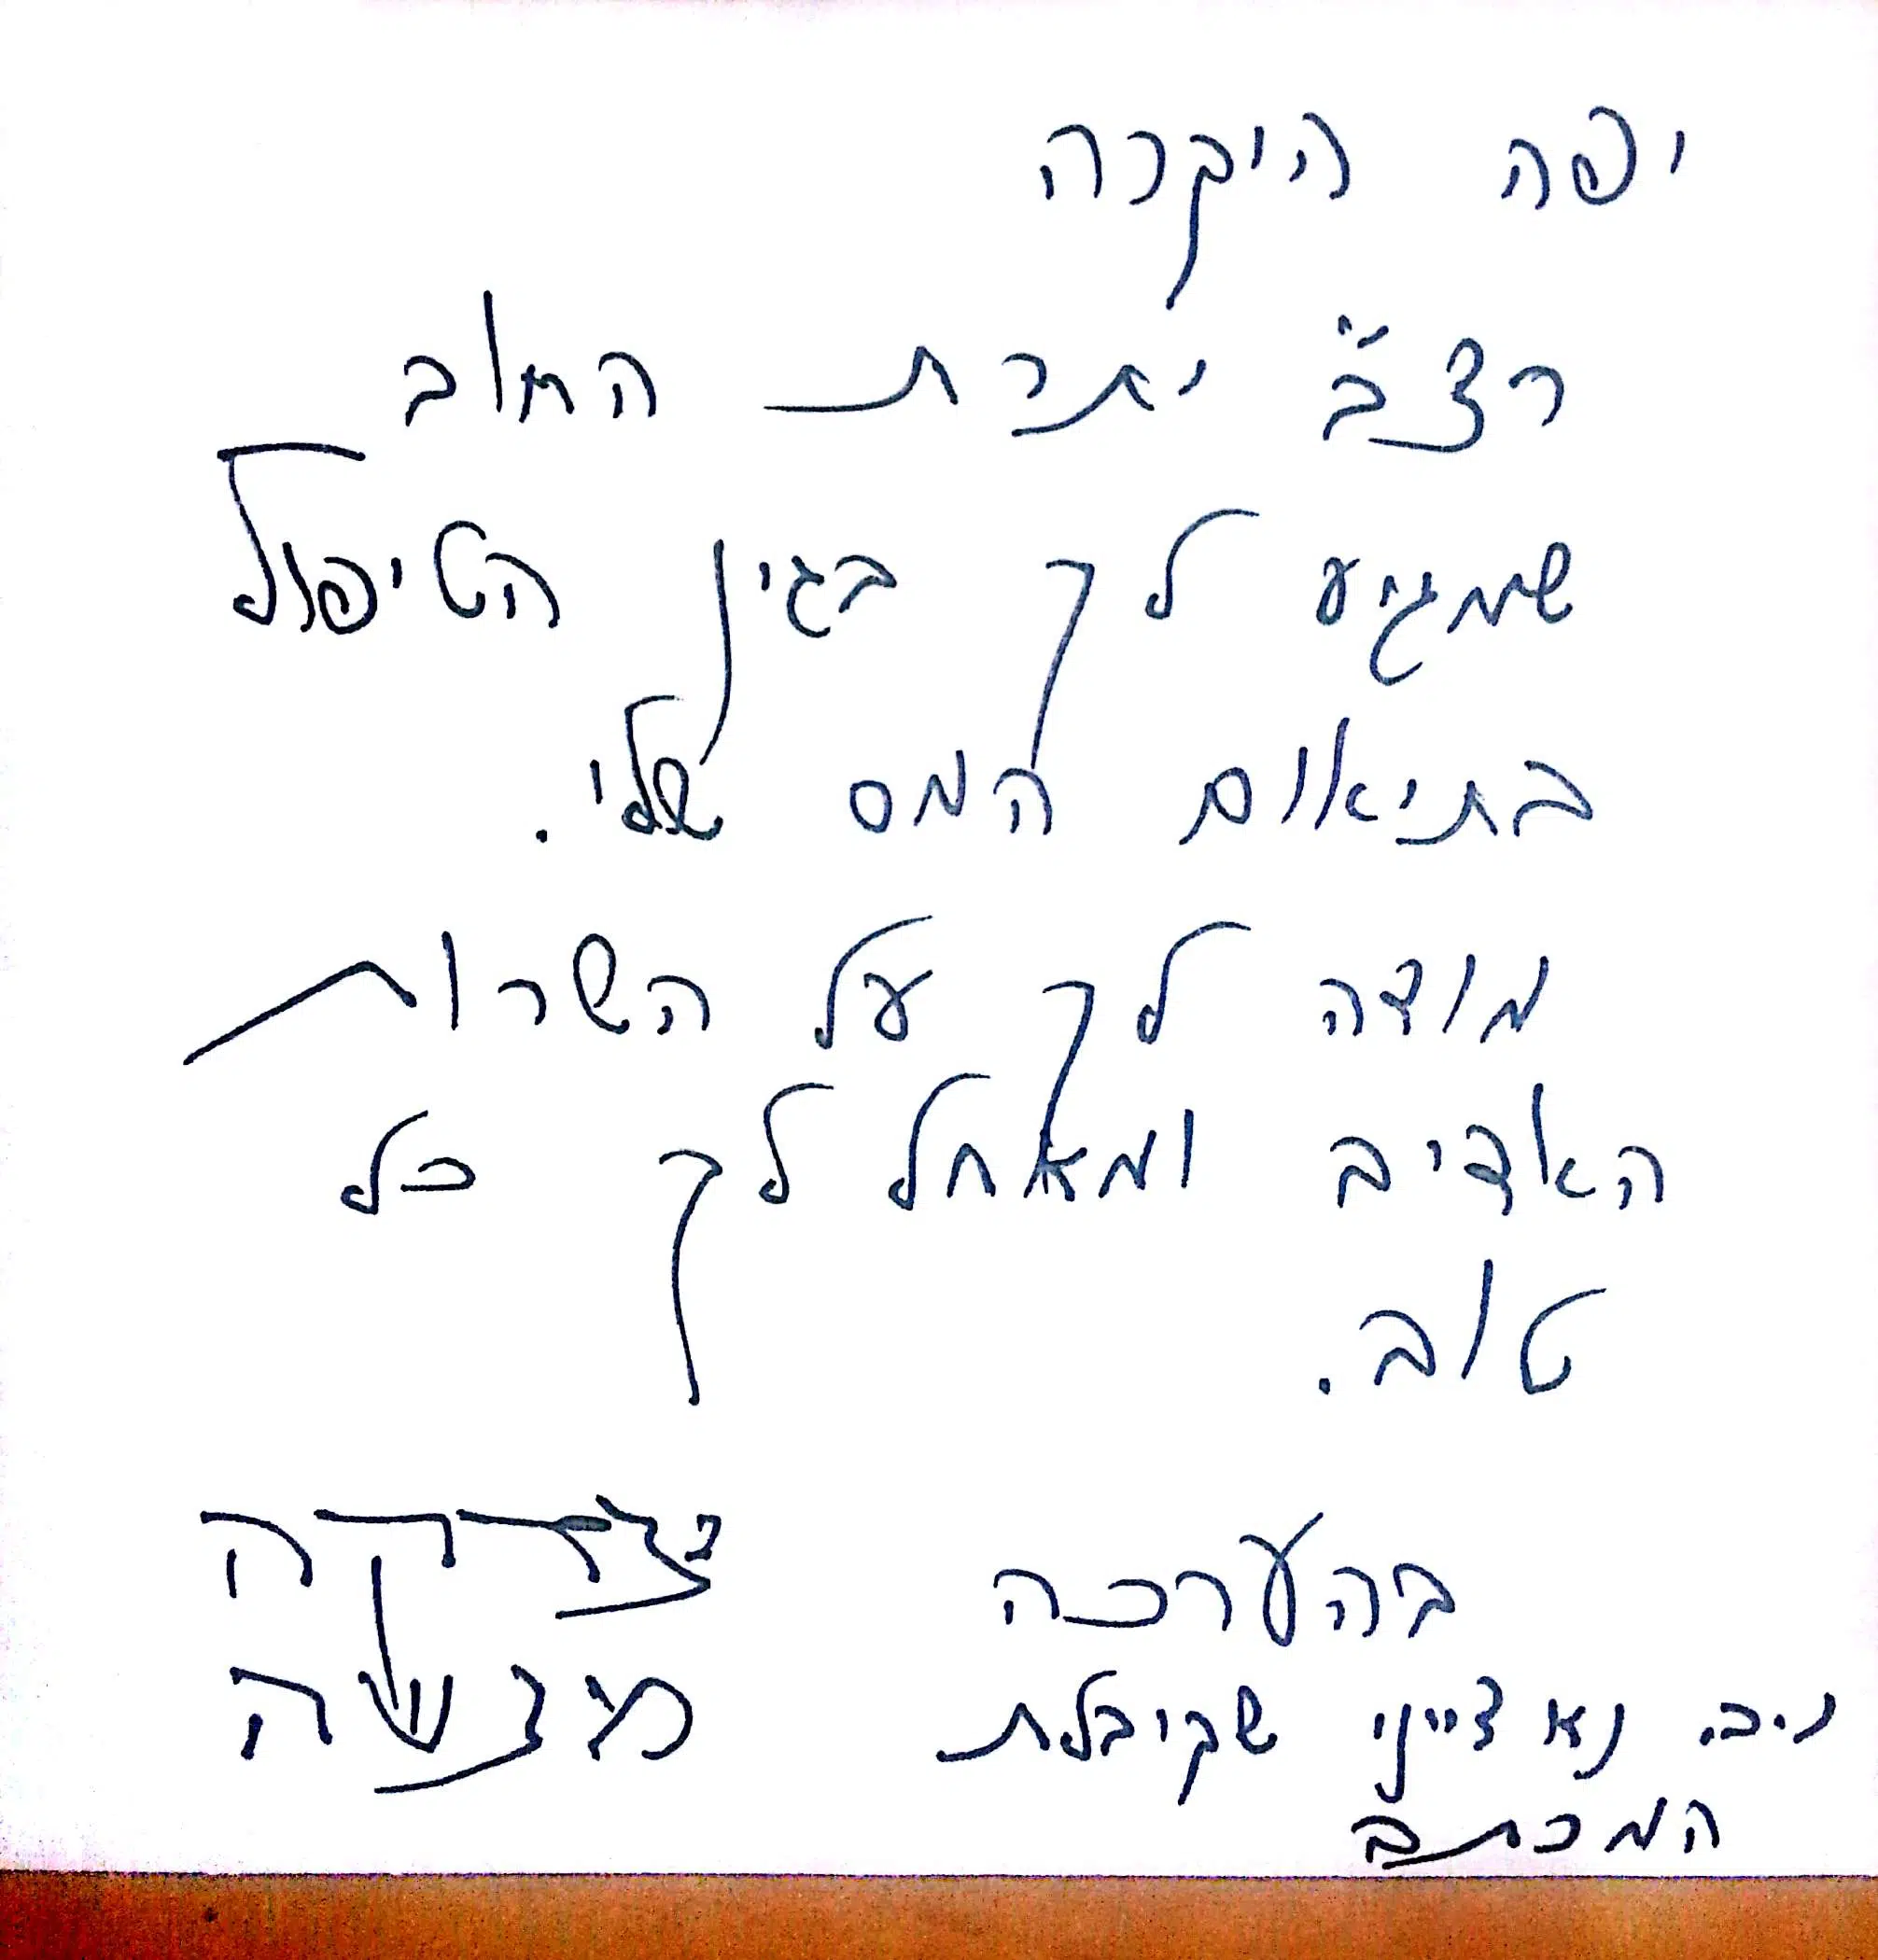 יפה היקרה
רצ"ב יתרת החוב
שמגיע לך בגין הטיפול
בתיאום המס שלי.
מודה לך על השרות
האדיב ומאחל לך כל
טוב.
בהערכה צדקה
נ.ב. נא צייני שקיבלת משה
המכתב